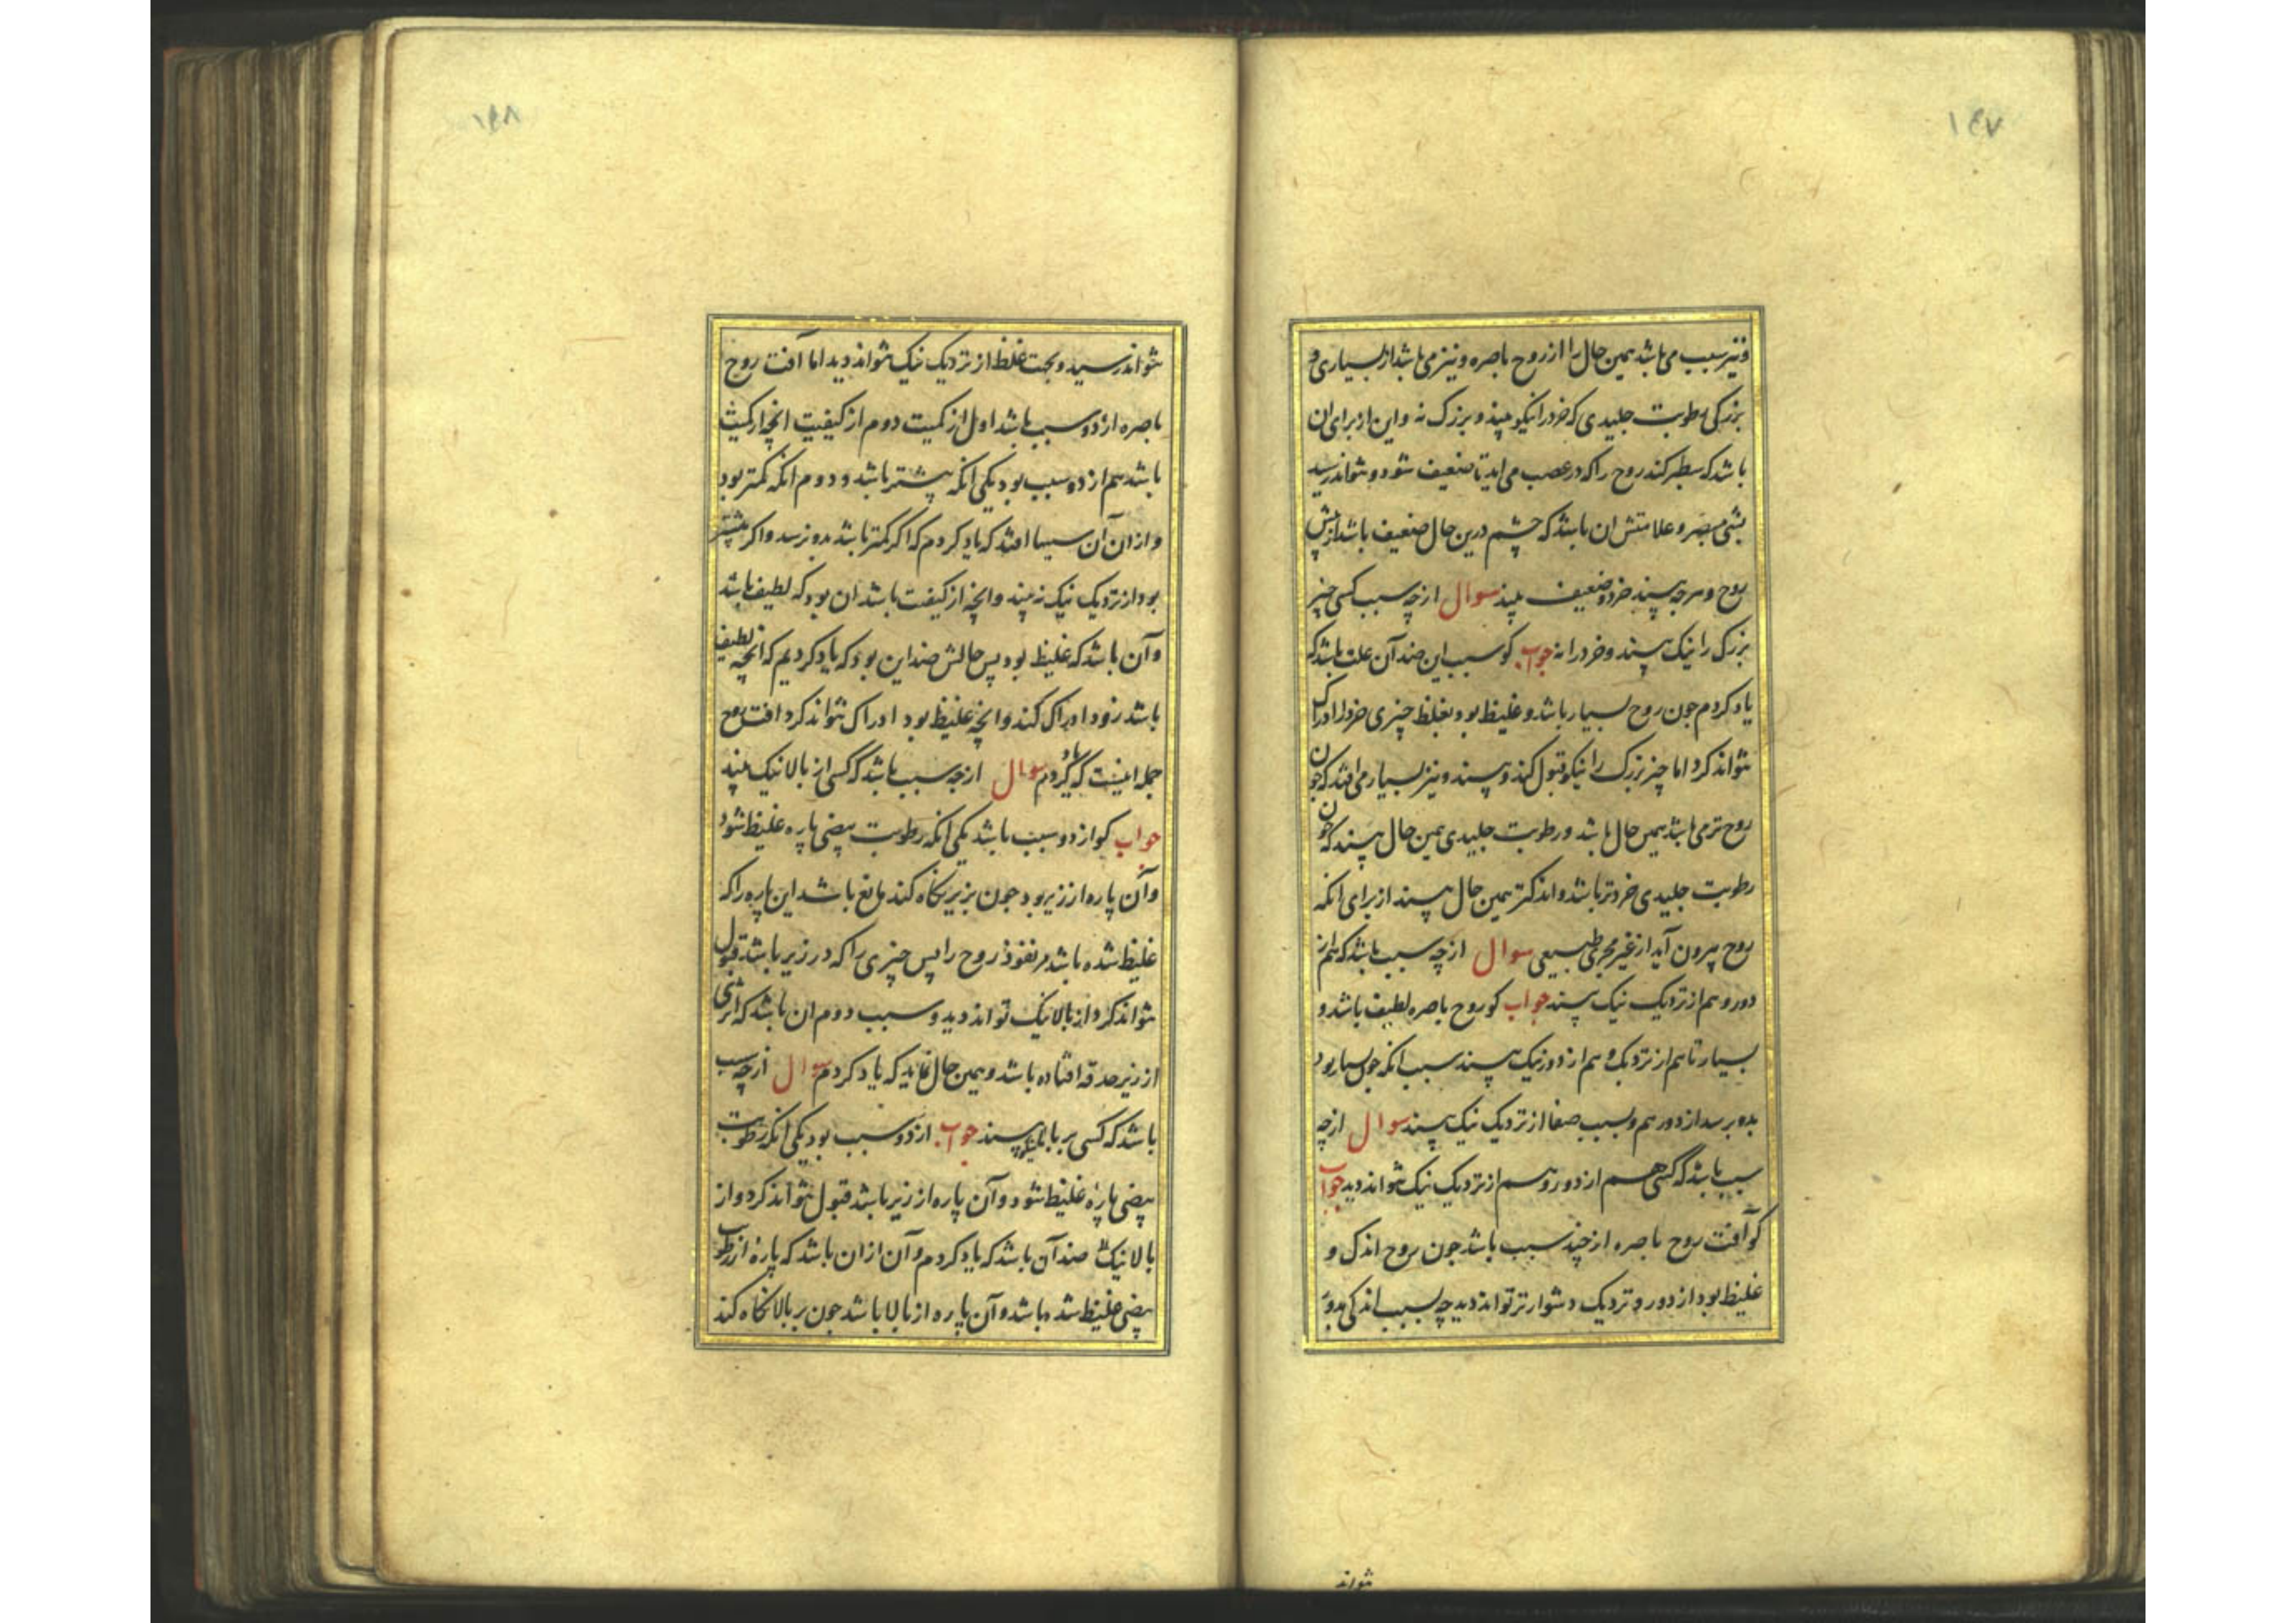 ١٤٧
و نیز سبب می باشد همین حال را از روح باصره و نیز می باشد از بسیاری و
بزرگی رطوبت جلیدی که خرد را نیکو بیند و بزرگ نه و این از برای ان
باشد که سطبر کند روح را که در عصب می آید تا ضعیف شود و نتواند رسید
بشی مبصر و علامتش ان باشد که چشم درین حال ضعیف باشد از پیش
روح و هرچه بیند خرد و ضعیف بیند سوال از چه سبب کسی چیز
بزرک را نیک بیند و خرد را نه جواب کو سبب این ضد آن علت باشد که
یاد کردم جون روح بسیار باشد و غلیظ بود بغلظ چیزی خرد را ادراک
نتواند کرد اما چیز بزرک را نیکو قبول کند و بیند و نیز بسیار می افتد که جون
روح تر می باشد همین حال باشد و رطوبت جلیدی همین حال بیند که جون
رطوبت جلیدی خردتر باشد و اندکتر همین حال بیند از برای انکه
روح بیرون آید از غیر مجری طبیعی سوال از چه سبب باشد که هم از
دور و هم از نزدیک نیک بیند جواب کو روح باصره لطیف باشد و
بسیار تا هم از نزدیک و هم از دور نیک بیند سبب انکه جون بسیار بود
بدو برسد از دور هم و بسبب صفا از نزدیک نیک بیند سوال از چه
سبب باشد که کسی هم از دور و هم از نزدیک نیک نتواند دید جواب
کو آفت روح باصره از چند سبب باشد جون روح اندک و
غلیظ بود از دور و نزدیک دشوارتر تواند دید چه بسبب اندکی بدو
نتواند
١٤٨
نتواند رسید و بجهت غلظ از نزدیک نیک نتواند دید اما آفت روح
باصره از دو سبب باشد اول از کمیت دوم از کیفیت انچه از کمیت
باشد هم از دو سبب بود یکی انکه بیشتر باشد و دوم انکه کمتر بود
و از ان آن سیبها افتد که یاد کردم که اگر کمتر باشد بدو نرسد و اکر بیشتر
بود از نزدیک نیک نبیند و انچه از کیفیت باشد ان بود که لطیف باشد
و آن باشد که غلیظ بود پس حالش ضد این بود که یاد کردیم که انچه لطیف
باشد زود ادراک کند و انچه غلیظ بود ادراک نتواند کرد افت روح
جمله اینست که یاد کردم سوال از چه سبب باشد که کسی از بالا نیک بیند
جواب کو از دو سبب باشد یکی انکه رطوبت بیضی پاره غلیظ شود
و آن پاره از زیر بود جون بزیر نکاه کند مانع باشد این پاره را که
غلیظ شده باشد مر نفوذ روح را پس چیزی را که در زیر باشد قبول
نتواند کرد از بالا نیک تواند دید و سبب دوم ان باشد که اثری
از زیر حدقه افتاده باشد و همین حال نماید که یاد کردم سوال از چه سبب
باشد که کسی بر بالا نیکو بیند جواب از دو سبب بود یکی انکه رطوبت
بیضی پارۀ غلیظ شود و آن پاره از زیر باشد قبول نتواند کرد و از
بالا نیک ضد آن باشد که یاد کردم و آن از ان باشد که پارۀ از رطوبت
بیضی غلیظ شده باشد و آن پاره از بالا باشد جون بر بالا نکاه کند